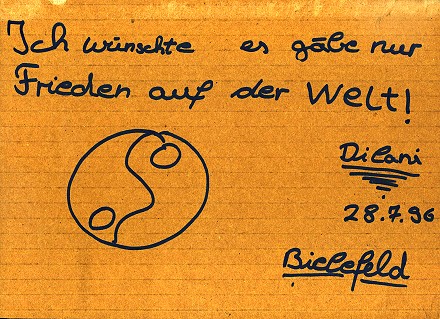 Ich wünschte es gäbe nur
Frieden auf der Welt!
Dilani
28.7.96
Bielefeld